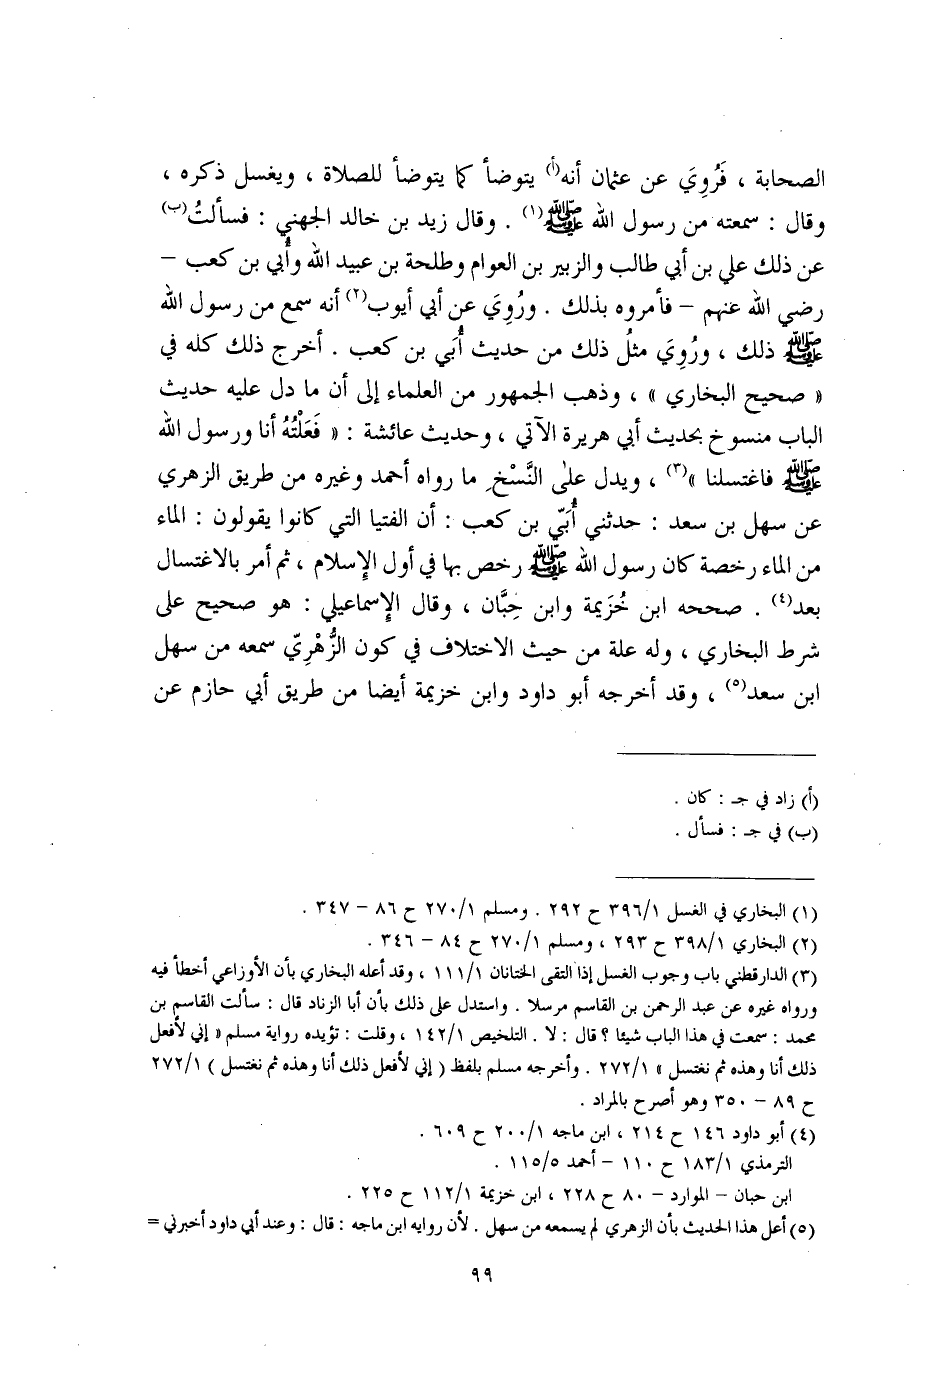 الصحابة ، فَرُوِيَ عن عثمان أنه(أ) يتوضأ كما يتوضأ للصلاة ، ويغسل ذكره ،
وقال : سمعته من رسول الله ﷺ(١) . وقال زيد بن خالد الجهني : فسألتُ(ب)
عن ذلك علي بن أبي طالب والزبير بن العوام وطلحة بن عبيد الله وأُبي بن كعب –
رضي الله عنهم – فأمروه بذلك . ورُوِيَ عن أبي أيوب(٢) أنه سمع من رسول الله
ﷺ ذلك ، ورُوِيَ مثلُ ذلك من حديث أُبَي بن كعب . أخرج ذلك كله في
« صحيح البخاري » ، وذهب الجمهور من العلماء إلى أن ما دل عليه حديث
الباب منسوخ بحديث أبي هريرة الآتي ، وحديث عائشة : « فَعَلْتُهُ أنا ورسول الله
ﷺ فاغتسلنا »(٣) ، ويدل على النَّسْخِ ما رواه أحمد وغيره من طريق الزهري
عن سهل بن سعد : حدثني أُبَيّ بن كعب : أن الفتيا التي كانوا يقولون : الماء
من الماء رخصة كان رسول الله ﷺ رخص بها في أول الإسلام ، ثم أمر بالاغتسال
بعد(٤) . صححه ابن خُزَيمة وابن حِبَّان ، وقال الإسماعيلي : هو صحيح على
شرط البخاري ، وله علة من حيث الاختلاف في كون الزُّهْرِيّ سمعه من سهل
ابن سعد(٥) ، وقد أخرجه أبو داود وابن خزيمة أيضا من طريق أبي حازم عن
(أ) زاد في جـ : كان .
(ب) في جـ : فسأل .
(١) البخاري في الغسل ٣٩٦/١ ح ٢٩٢ . ومسلم ٢٧٠/١ ح ٨٦ – ٣٤٧ .
(٢) البخاري ٣٩٨/١ ح ٢٩٣ ، ومسلم ٢٧٠/١ ح ٨٤ – ٣٤٦ .
(٣) الدارقطني باب وجوب الغسل إذا التقى الختانان ١١١/١ ، وقد أعله البخاري بأن الأوزاعي أخطأ فيه
ورواه غيره عن عبد الرحمن بن القاسم مرسلا . واستدل على ذلك بأن أبا الزناد قال : سألت القاسم بن
محمد : سمعت في هذا الباب شيئا ؟ قال : لا . التلخيص ١٤٢/١ ، وقلت : تؤيده رواية مسلم « إني لأفعل
ذلك أنا وهذه ثم نغتسل » ٢٧٢/١ . وأخرجه مسلم بلفظ ( إني لأفعل ذلك أنا وهذه ثم نغتسل ) ٢٧٢/١
ح ٨٩ – ٣٥٠ وهو أصرح بالمراد .
(٤) أبو داود ١٤٦ ح ٢١٤ ، ابن ماجه ٢٠٠/١ ح ٦٠٩ .
الترمذي ١٨٣/١ ح ١١٠ – أحمد ١١٥/٥ .
ابن حبان – الموارد – ٨٠ ح ٢٢٨ ، ابن خزيمة ١١٢/١ ح ٢٢٥ .
(٥) أعل هذا الحديث بأن الزهري لم يسمعه من سهل . لأن روايه ابن ماجه : قال : وعند أبي داود أخبرني =
٩٩